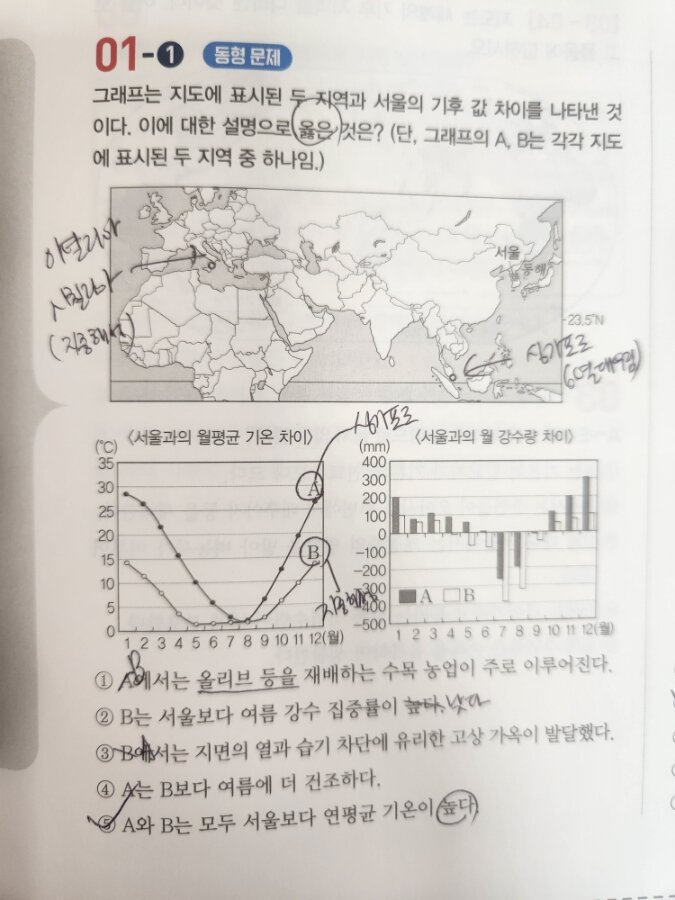 01-1 동형 문제
그래프는 지도에 표시된 두 지역과 서울의 기후 값 차이를 나타낸 것
이다. 이에 대한 설명으로 옳은 것은? (단, 그래프의 A, B는 각각 지도
에 표시된 두 지역 중 하나임.)
이탈리아
(지중해성)
서울
동해
23.5°N
싱가포르
(열대우림)
싱가포르
〈서울과의 월평균 기온 차이〉
(℃)
35
30
25
20
15
10
5
0
A
B
1 2 3 4 5 6 7 8 9 10 11 12(월)
〈서울과의 월 강수량 차이〉
(mm)
400
300
200
100
0
-100
-200
-300
-400
-500
A B
1 2 3 4 5 6 7 8 9 10 11 12(월)
B
① A에서는 올리브 등을 재배하는 수목 농업이 주로 이루어진다.
② B는 서울보다 여름 강수 집중률이 높다. 낮다
A
③ B에서는 지면의 열과 습기 차단에 유리한 고상 가옥이 발달했다.
④ A는 B보다 여름에 더 건조하다.
⑤ A와 B는 모두 서울보다 연평균 기온이 높다.